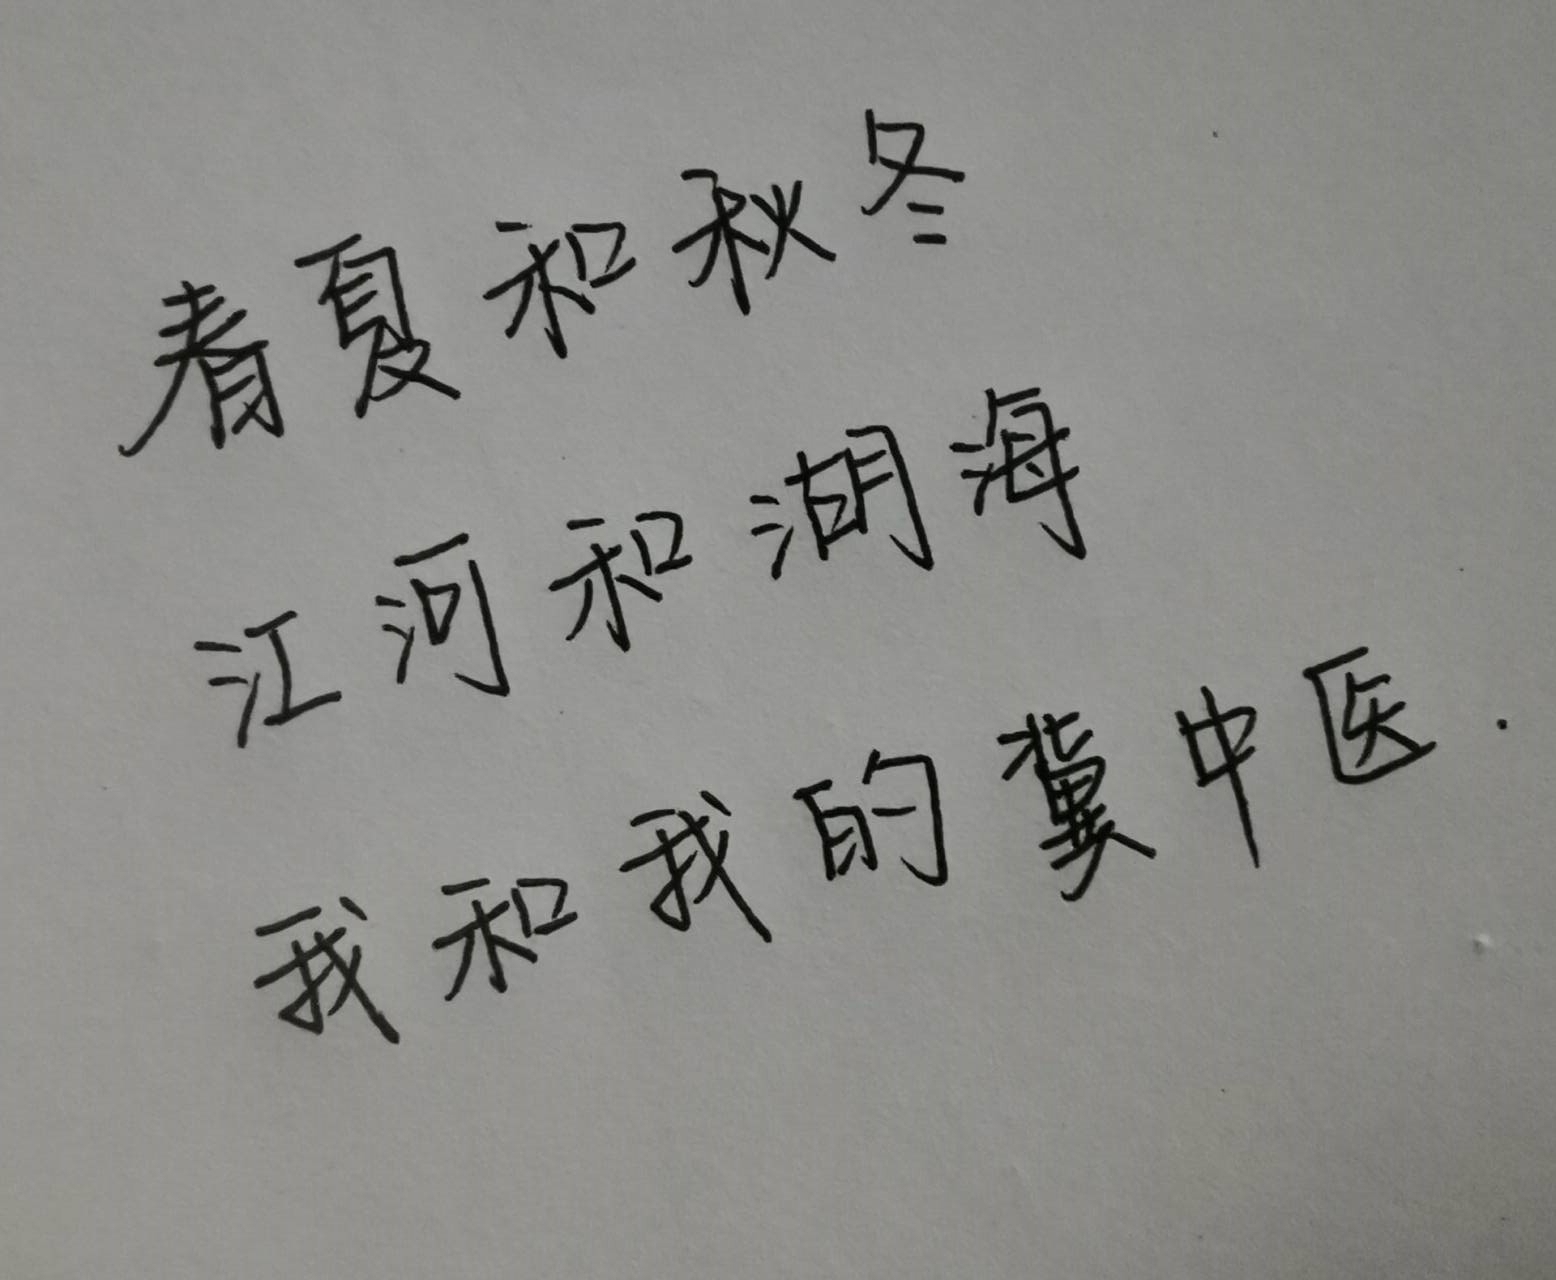 春夏和秋冬
江河和湖海
我和我的冀中医.